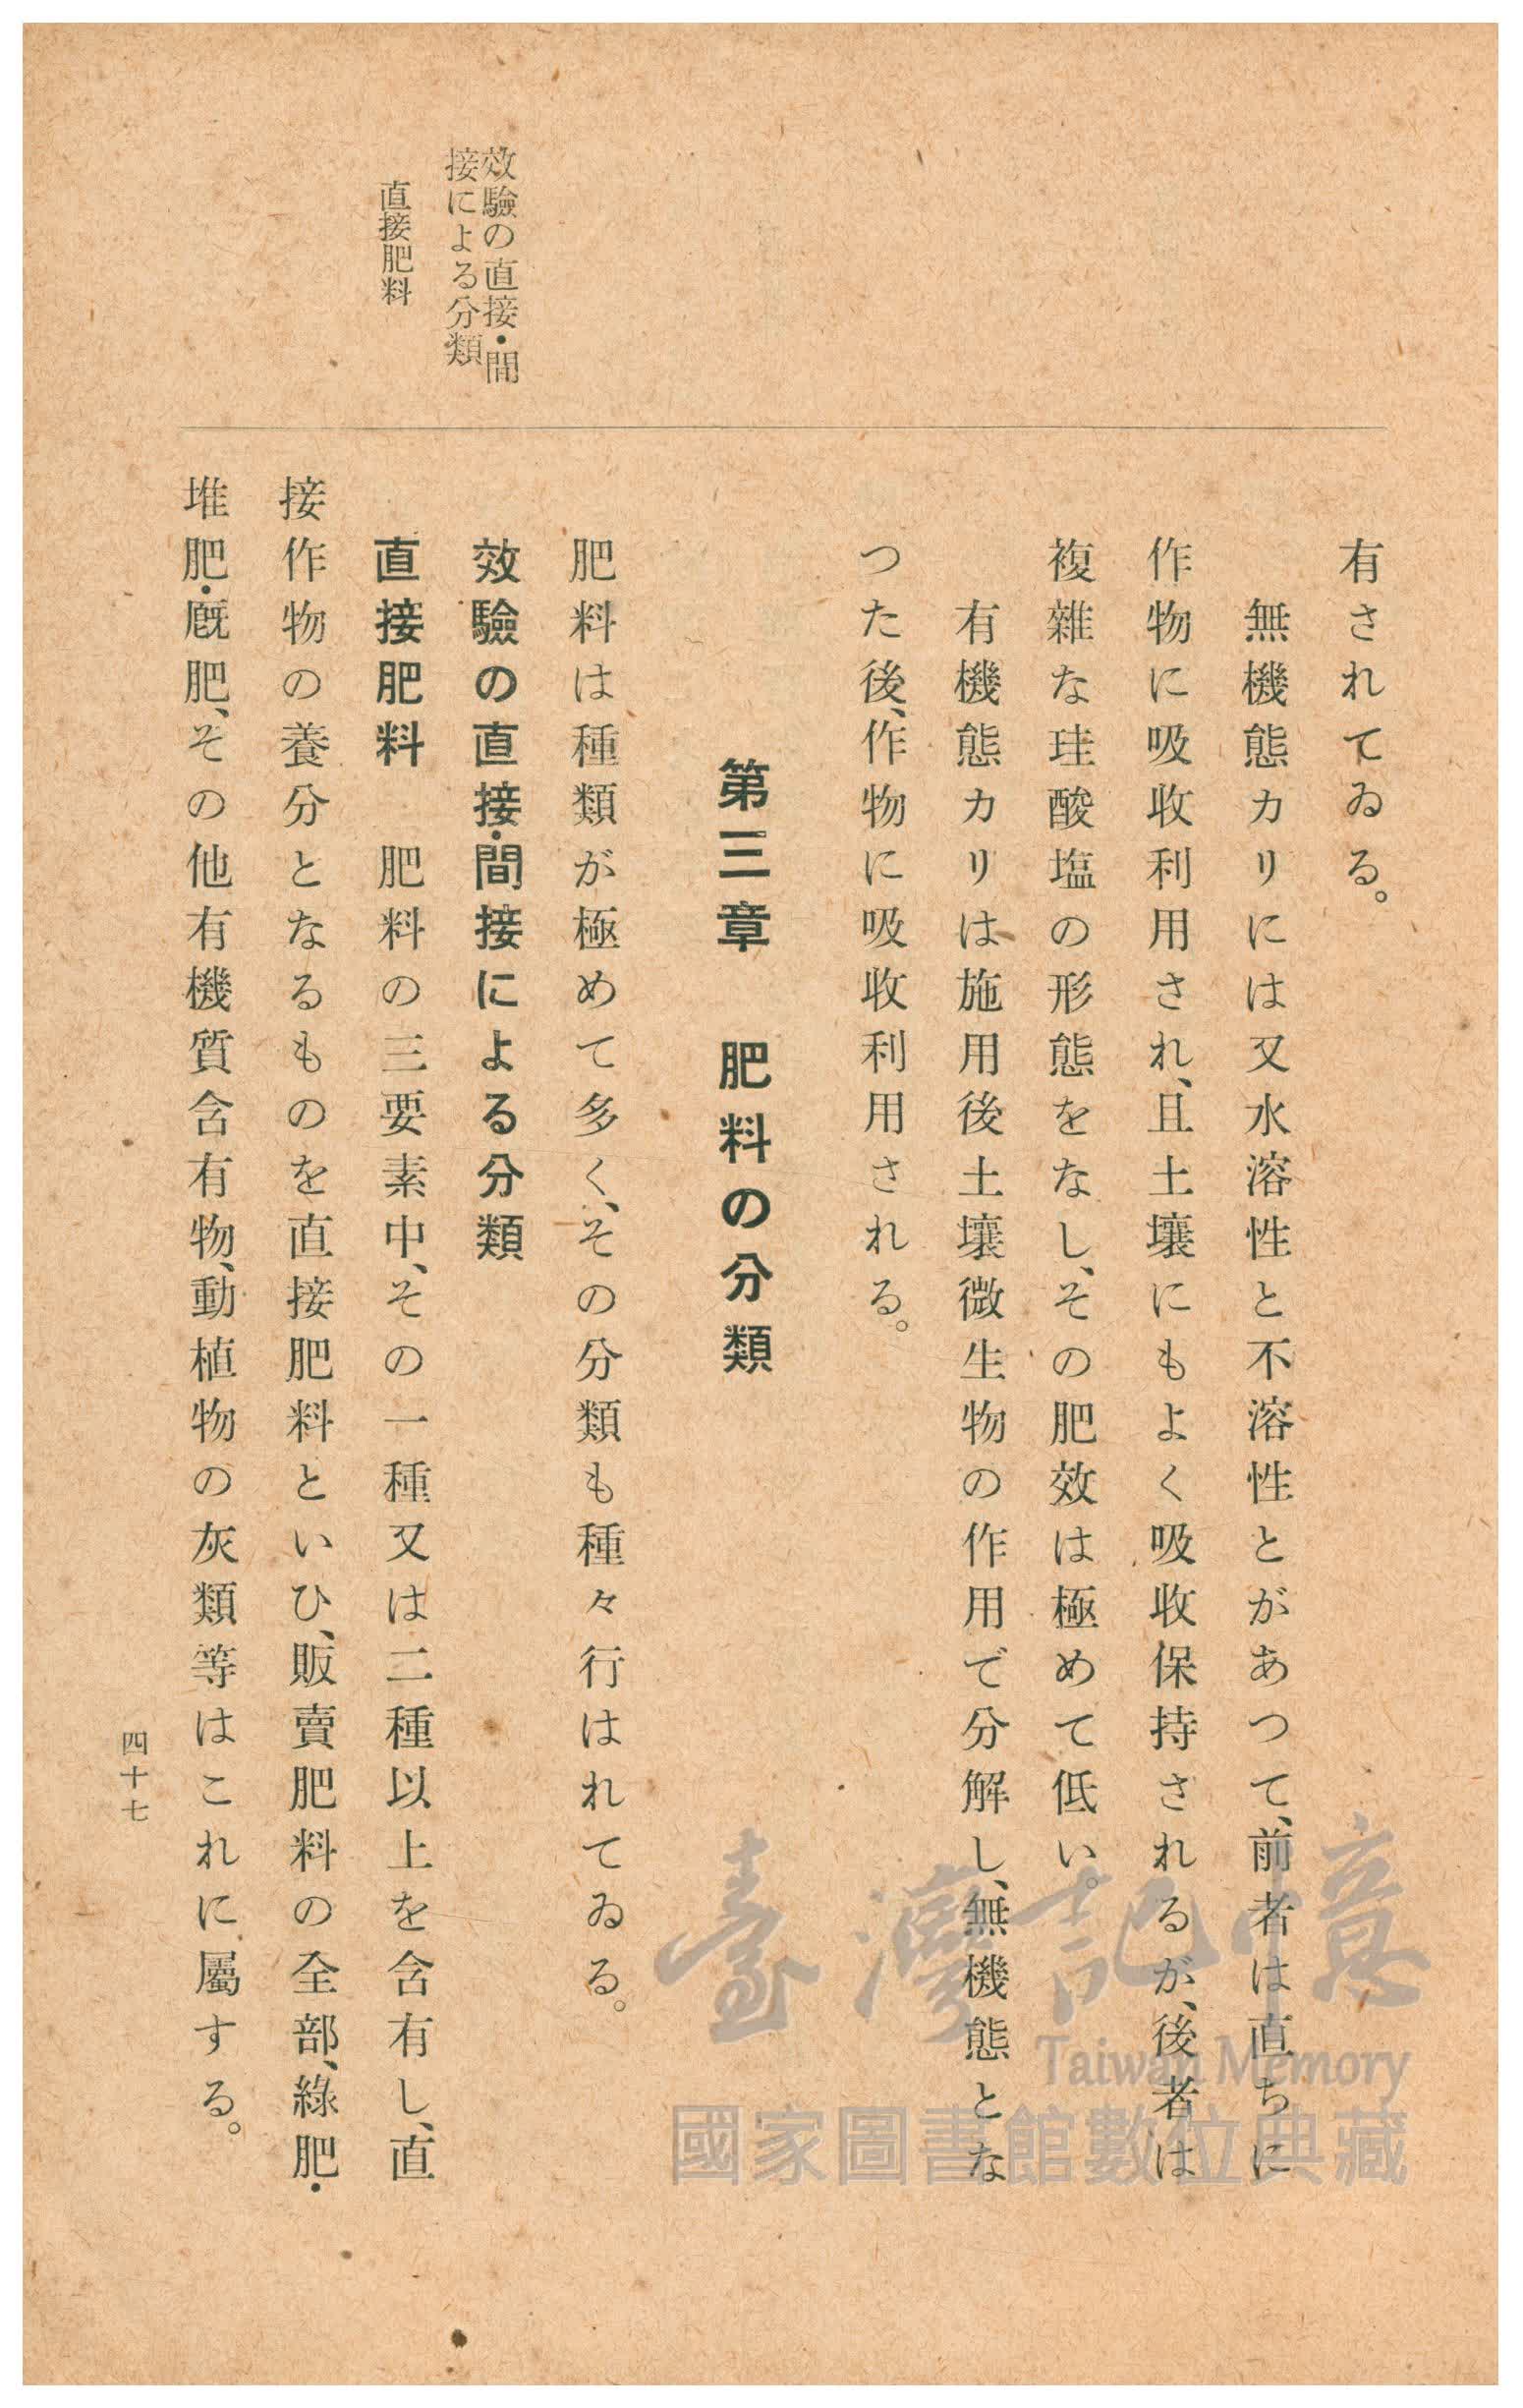 有されてゐる。
無機態カリには又水溶性と不溶性とがあつて、前者は直ちに
作物に吸收利用され、且土壤にもよく吸收保持されるが、後者は
複雜な珪酸塩の形態をなし、その肥效は極めて低い。
有機態カリは施用後土壤微生物の作用で分解し、無機態とな
つた後、作物に吸收利用される。
第三章 肥料の分類
肥料は種類が極めて多く、その分類も種々行はれてゐる。
效驗の直接・間
接による分類
效驗の直接・間接による分類
直接肥料
直接肥料 肥料の三要素中、その一種又は二種以上を含有し、直
接作物の養分となるものを直接肥料といひ、販賣肥料の全部、綠肥・
堆肥・廐肥、その他有機質含有物、動植物の灰類等はこれに屬する。
四十七
臺灣記憶
Taiwan Memory
國家圖書館數位典藏